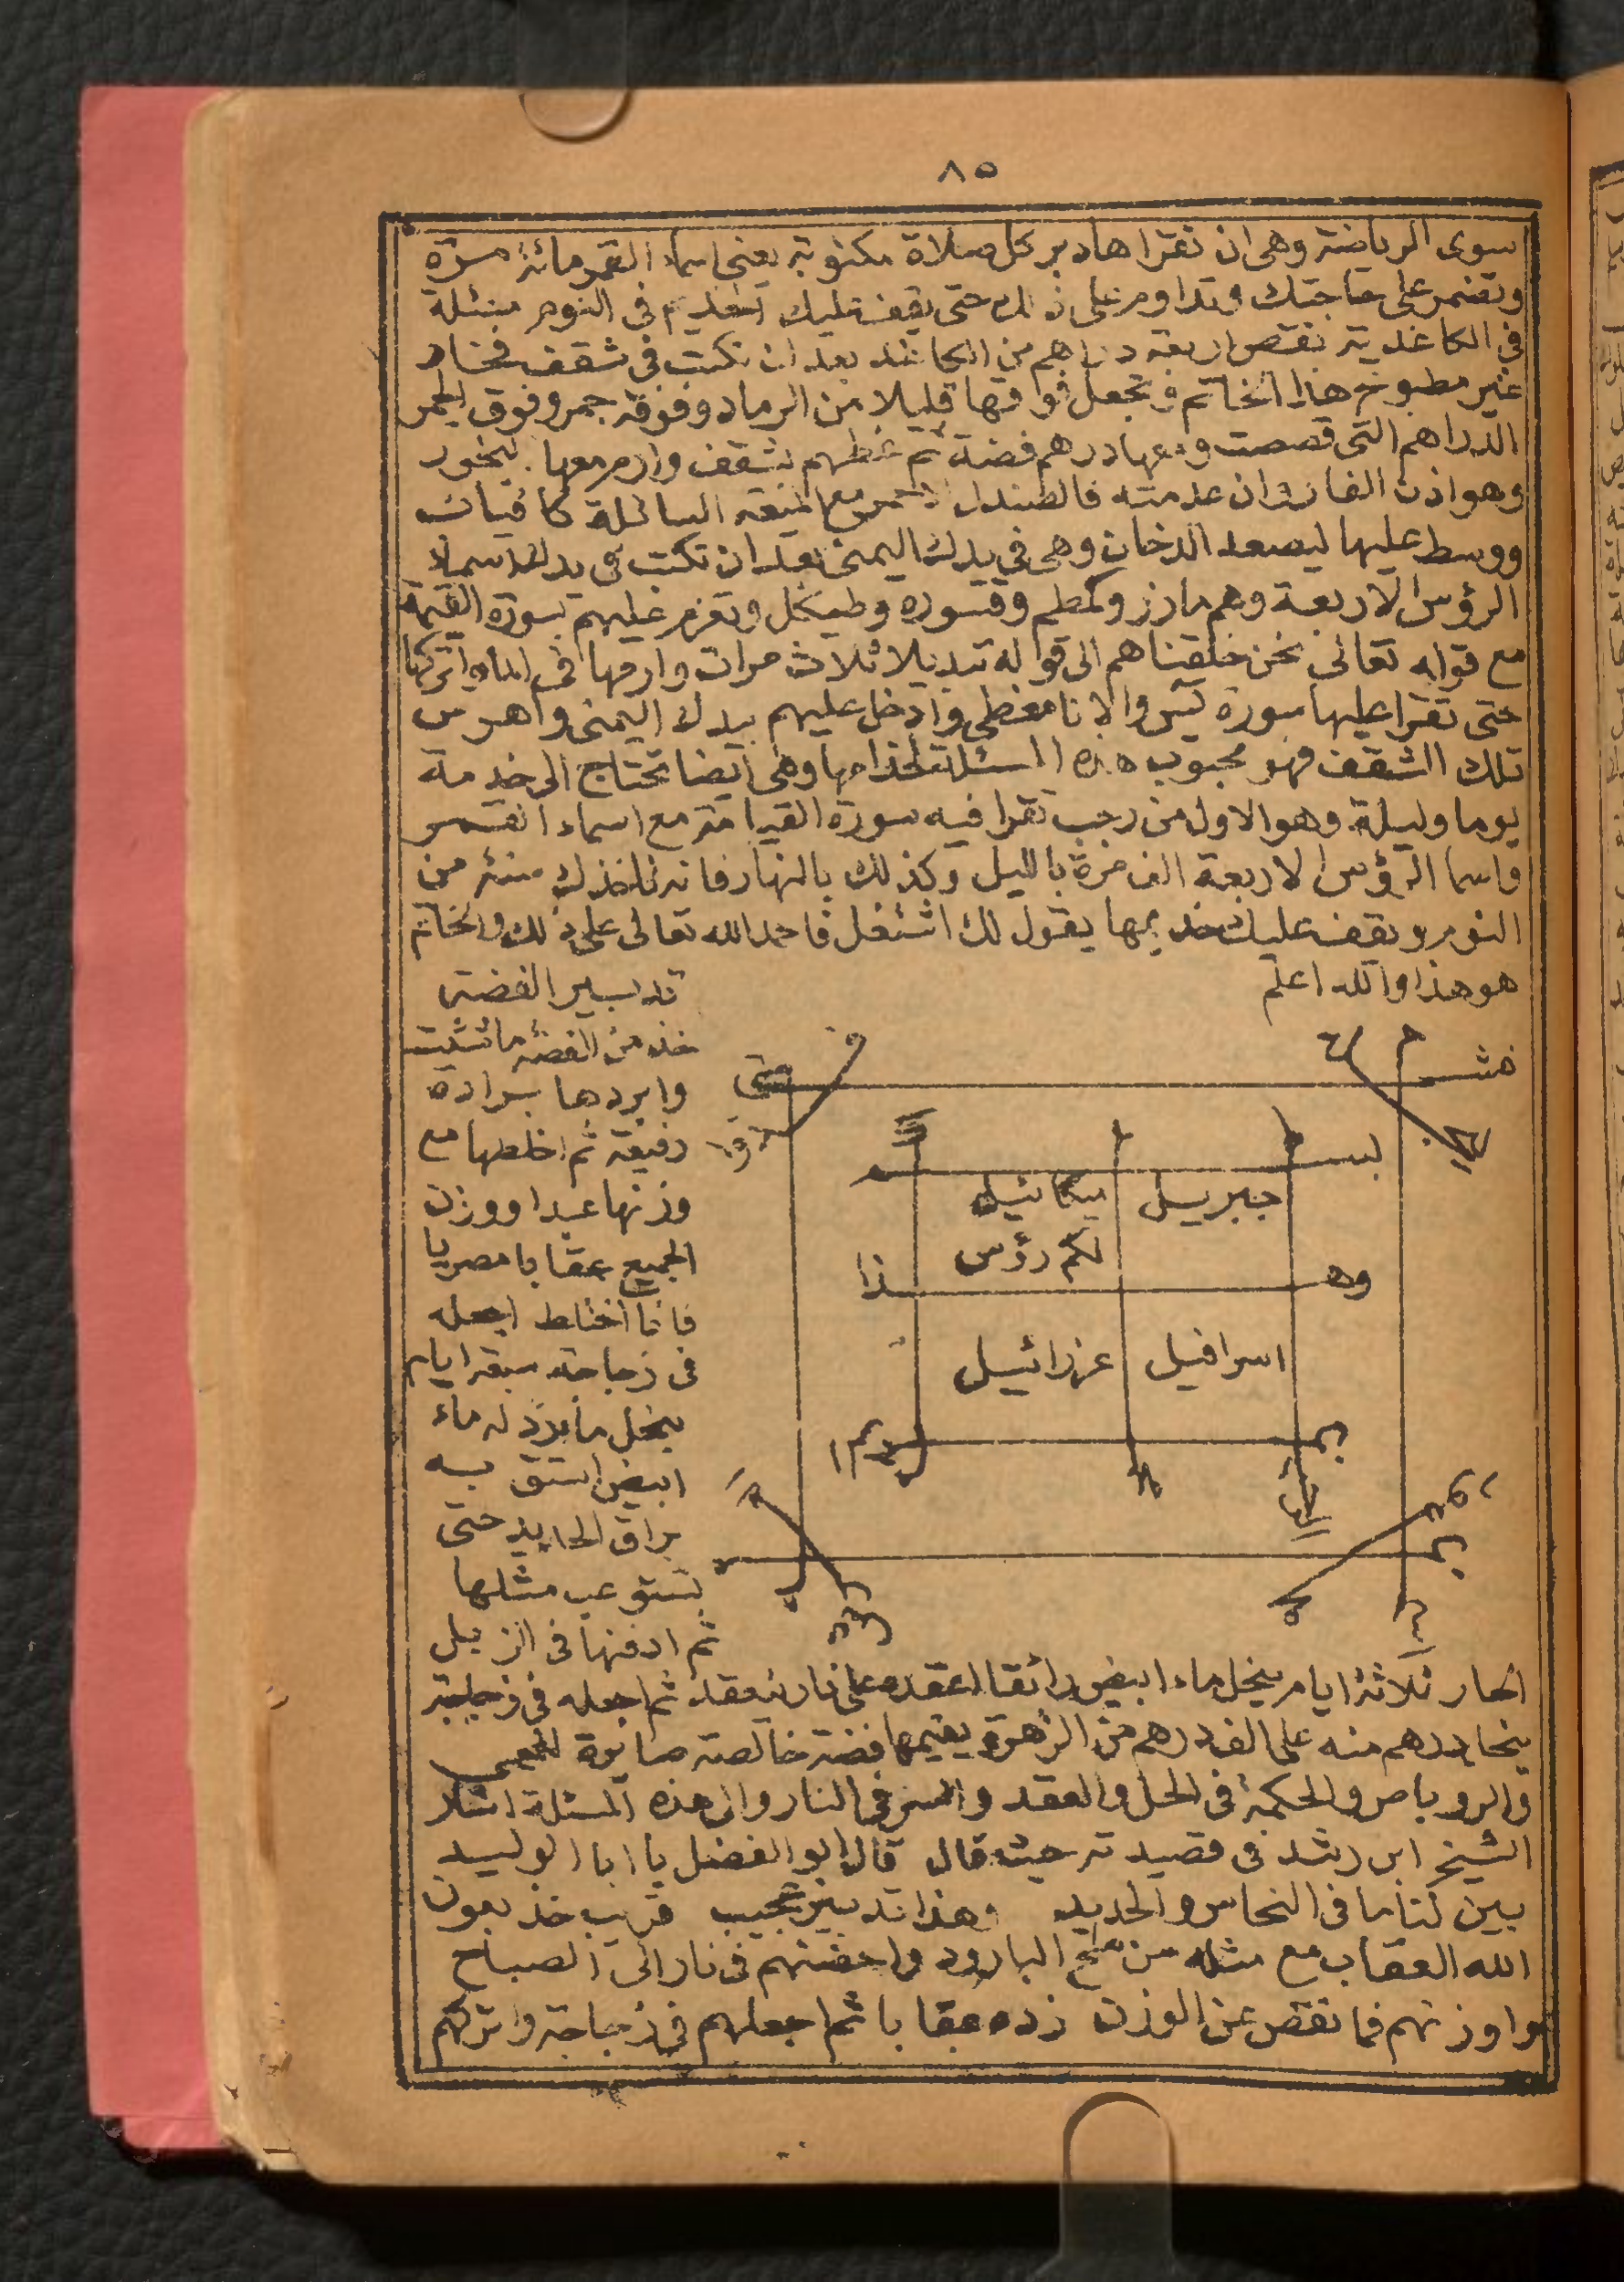 ٨٥
سوى الرياضة وهى ان تقرا هاد بر كل صلاة مكتوبة يعنى اسماء القمر مائة مرة
وتضمر على حاجتك وتداوم على ذلك حتى يقف عليك الخديم فى النوم مسئلة
فى الكاغدية تقص اربعة دراهم من الكاغد بعد ان تكتب فى شقف فخار
غير مطبوخ هذا الخاتم وتجعل فوقها قليلا من الرماد وفوقه جمر وفوق الجمر
الدراهم التى قصصت ومعها درهم فضة ثم غطهم بشقف وارم معها البخور
وهو اذن الفار وان عدمته فالصندل الاحمر مع الميعة السائلة كافيات
ووسط عليها ليصعد الدخان وهى فى يدك اليمنى بعد ان تكتب فى يدك اسماء
الرؤس الاربعة وهم مازر وكمطم وقسورة وطيكل وتعزم عليهم بسورة القيمة
مع قوله تعالى نحن خلقناهم الى قوله تبديلا ثلاث مرات وارمها فى الماء واتركها
حتى تقرا عليها سورة يس والانا مغطى وادخل عليهم يدك اليمنى واهرس
تلك الشقف فهو محبوب هذه المسئلة لخدامها وهى ايضا تحتاج الى خدمة
يوما وليلة وهو الاول من رجب تقرا فيه سورة القيامة مع اسماء القمر
واسما الرؤس الاربعة الف مرة بالليل وكذلك بالنهار فانه تاخذك سنة من
النوم ويقف عليك خديمها يقول لك اشتغل فاحمد الله تعالى على ذلك والخاتم
هو هذا والله اعلم
جبريل ميكائيل
لكم رؤس
وهـ ذا
اسرافيل عزرائيل
تدبير الفضة
خذ من الفضة ما شئت
وابردها برادة
دقيقة ثم اخلطها مع
وزنها عبدا ووزن
الجميع عقابا مصريا
فاذا اختلط اجعله
فى زجاجة سبعة ايام
ينحل ما بردّ له ماء
ابيض استق به
براق الحديد حتى
تستوعب مثلها
ثم ادفنها فى الزبل
الحار ثلاثة ايام ينحل ماء ابيض رائقا اعقده على نار ينعقد ثم اجعله فى زجاجة
درهم منه على الف درهم من الزهرة يقيمها فضة خالصة صابرة للحمى
والروباص والحكمة فى الحل والعقد والسر فى النار والى هذه المسئلة اشار
الشيخ ابن رشد فى قصيدته حيث قال قال ابو الفضل يا ابا الوليد
بين لنا ما فى النحاس والحديد وهذا تدبير عجيب قريب خذ بعون
الله العقاب مع مثله من ملح البارود واحضنهم فى نار الى الصباح
واوزنهم فما نقص عن الوزن زده عقابا ثم اجعلهم فى زجاجة واتركهم